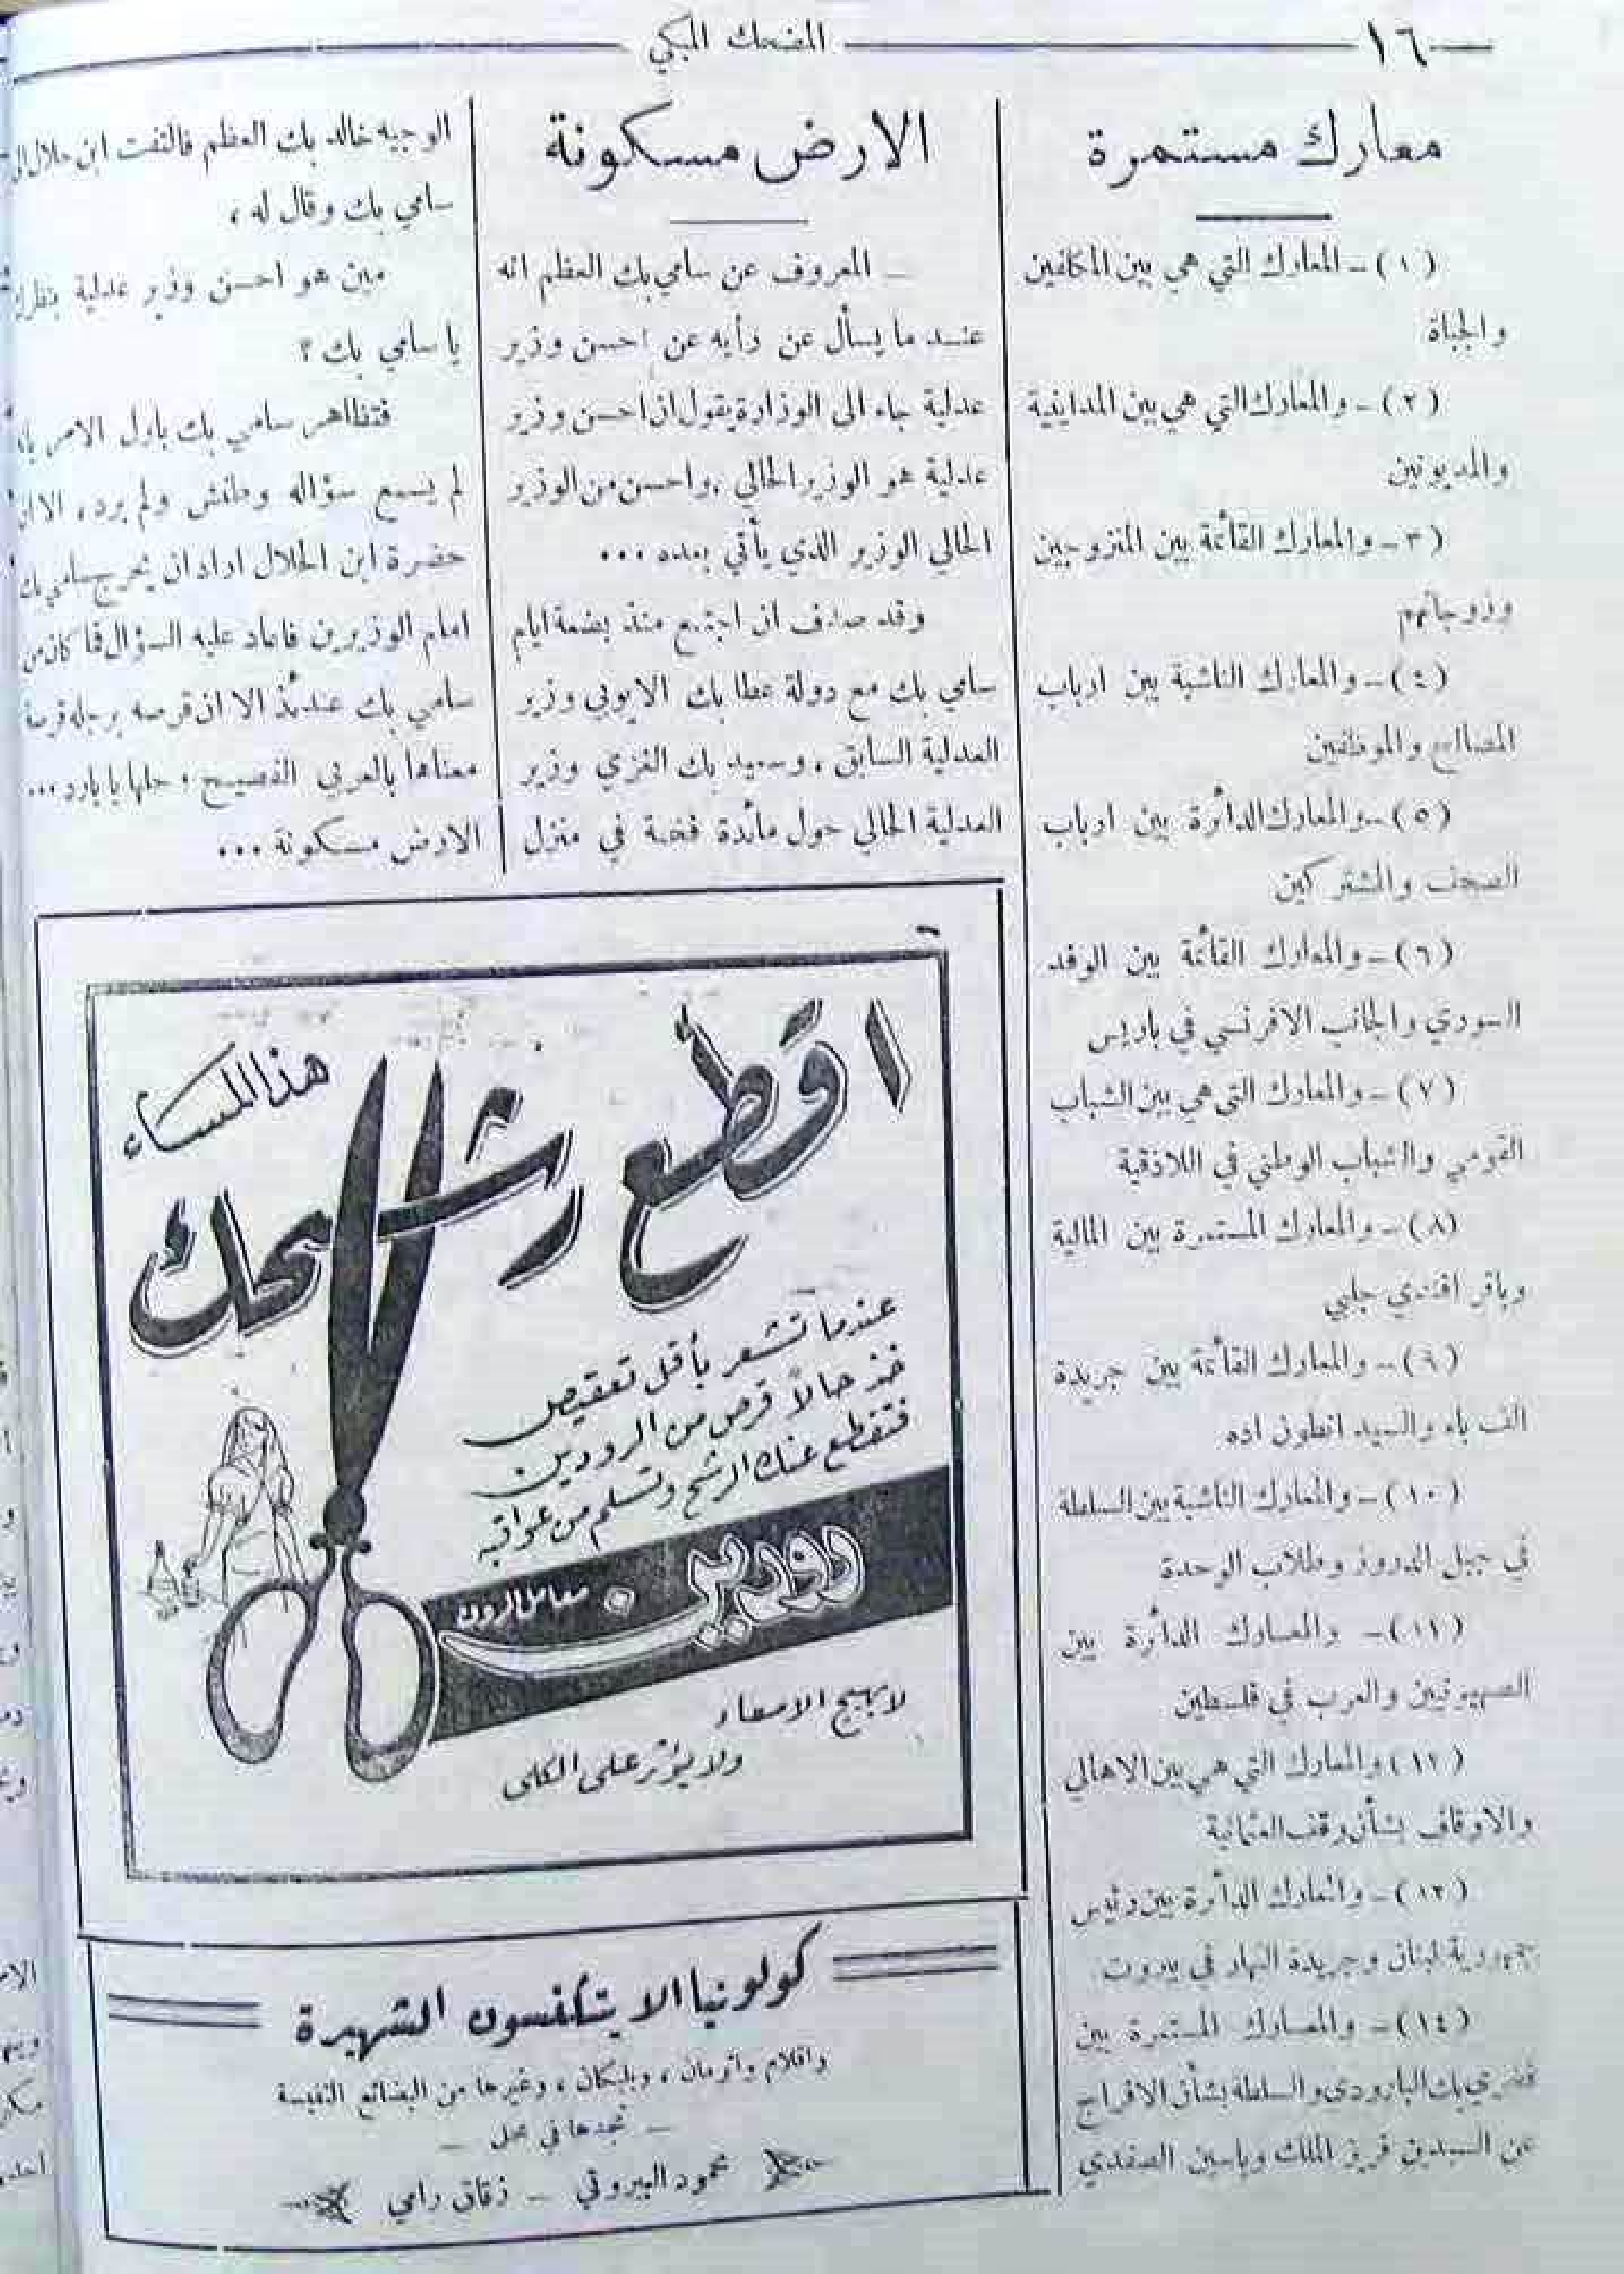 ١٦
المضحك المبكي
معارك مستمرة
(١) ـ المعارك التي هي بين المكلفين
والجباة
(٢) ـ والمعارك التي هي بين المداينية
والمديونين
(٣ ـ والمعارك القائمة بين المتزوجين
وزوجاتهم
(٤) ـ والمعارك الناشبة بين ارباب
المصالح والموظفين
(٥) ـ والمعارك الدائرة بين ارباب
الصحف والمشتركين
(٦) ـ والمعارك القائمة بين الوفد
السوري والجانب الافرنسي في باريس
(٧) ـ والمعارك التي هي بين الشباب
القومي والشباب الوطني في اللاذقية
(٨) ـ والمعارك المستمرة بين المالية
وباقر افندي جلبي
(٩) ـ والمعارك القائمة بين جريدة
الف باء والسيد انطون اده
(١٠) ـ والمعارك الناشبة بين السلطة
في جبل الدروز وطلاب الوحدة
(١١) ـ والمعارك الدائرة بين
الصهيونيين والعرب في فلسطين
(١٢) والمعارك التي هي بين الاهالي
والاوقاف بشأن وقف العثمانية
(١٣) ـ والمعارك الدائرة بين رئيس
جمهورية لبنان وجريدة النهار في بيروت
(١٤) ـ والمعارك المستمرة بين
فخري بك البارودي والسلطة بشأن الافراج
عن السيدين فريز الملك وياسين الصفدي
الارض مسكونة
ـ المعروف عن سامي بك العظم انه
عند ما يسأل عن رأيه عن احسن وزير
عدلية جاء الى الوزارة يقول ان احسن وزير
عدلية هو الوزير الحالي ، واحسن من الوزير
الحالي الوزير الذي يأتي بعده ...
وقد صادف ان اجتمع منذ بضعة ايام
سامي بك مع دولة عطا بك الايوبي وزير
العدلية السابق ، وسعيد بك الغزي وزير
العدلية الحالي حول مائدة فخمة في منزل
الوجيه خالد بك العظم فالتفت ابن حلال الى
سامي بك وقال له ،
مين هو احسن وزير عدلية بنظرك
يا سامي بك ؟
فتظاهر سامي بك باول الامر بانه
لم يسمع سؤاله وطنش ولم يرد ، الا ان
حضرة ابن الحلال اراد ان يحرج سامي بك
امام الوزيرين فاعاد عليه السؤال فما كان من
سامي بك عندئذ الا ان قرصه برجله قرصة
معناها بالعربي الفصيح : حلها يا بارد ...
الارض مسكونة ...
اقطع رشحك
هذا المساء
عندما تشعر بأقل تعقيص
خذ حالاً قرص من الرودين
فتقطع عنك الرشح وتسلم من عواقبه
رودين
معامل الرون
لا يهيج الامعاء
ولا يؤثر على الكلى
كولونيا الايتكنسون الشهيرة
واقلام واترمان ، وبليكان ، وغيرها من البضائع النفيسة
ـ تجدها في محل ـ
محمود البيروتي ـ زقاق رامي